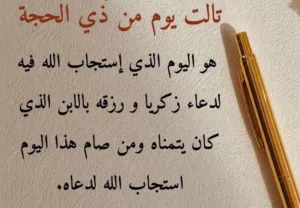 تالت يوم من ذي الحجة
هو اليوم الذي إستجاب الله فيه
لدعاء زكريا و رزقه بالابن الذي
كان يتمناه ومن صام هذا اليوم
استجاب الله لدعاه.